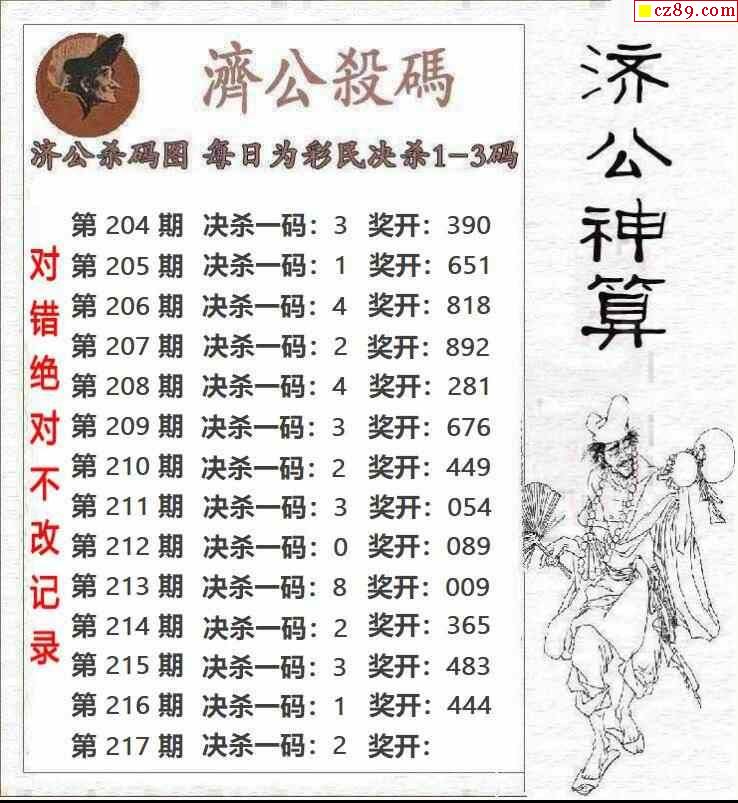 cz89.com
濟公殺碼
济公杀码图 每日为彩民决杀1-3码
第 204 期 决杀一码：3 奖开：390
第 205 期 决杀一码：1 奖开：651
第 206 期 决杀一码：4 奖开：818
第 207 期 决杀一码：2 奖开：892
第 208 期 决杀一码：4 奖开：281
第 209 期 决杀一码：3 奖开：676
第 210 期 决杀一码：2 奖开：449
第 211 期 决杀一码：3 奖开：054
第 212 期 决杀一码：0 奖开：089
第 213 期 决杀一码：8 奖开：009
第 214 期 决杀一码：2 奖开：365
第 215 期 决杀一码：3 奖开：483
第 216 期 决杀一码：1 奖开：444
第 217 期 决杀一码：2 奖开：
对错绝对不改记录
济公神算